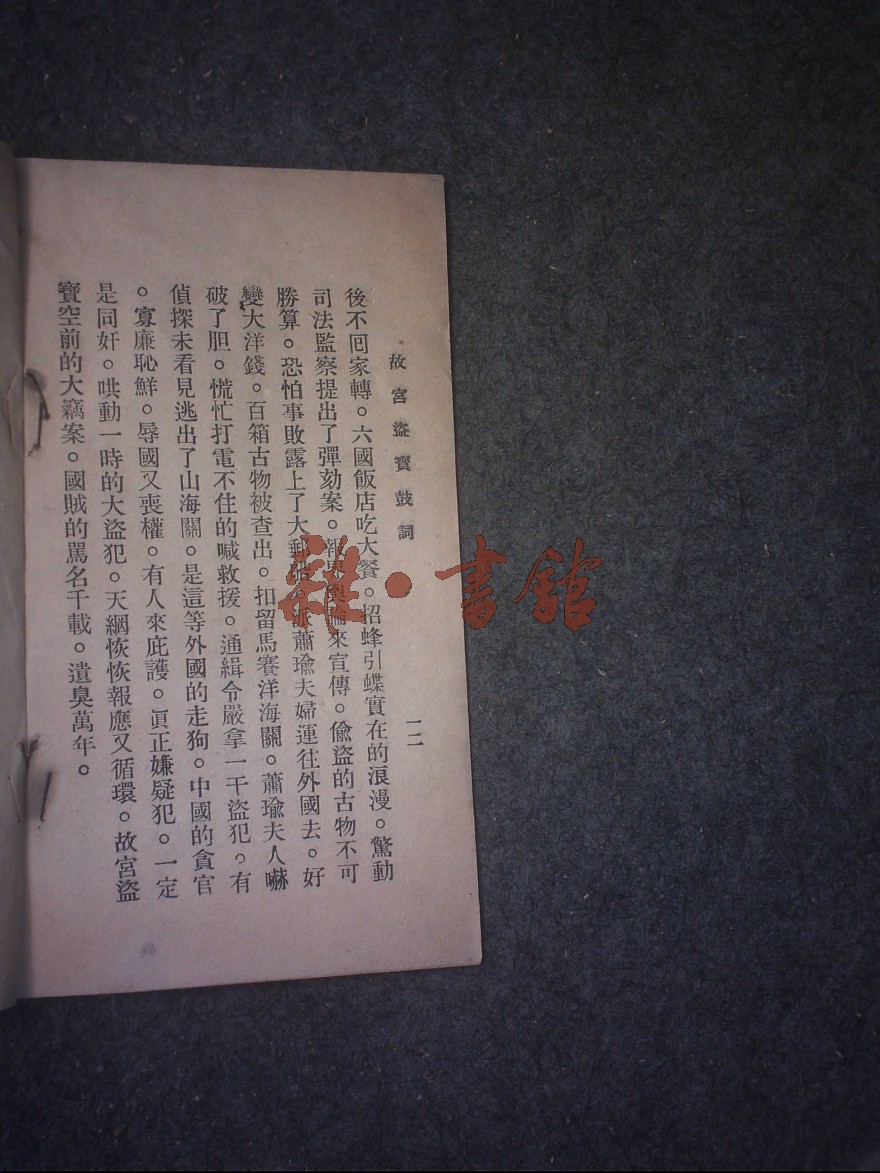 故宮盜寶鼓詞
一二
後不囘家轉。六國飯店吃大餐。招蜂引蝶實在的浪漫。驚動
司法監察提出了彈劾案。報界輿論來宣傳。偸盜的古物不可
勝算。恐怕事敗露上了大郵船。派蕭瑜夫婦運往外國去。好
變大洋錢。百箱古物被查出。扣留馬賽洋海關。蕭瑜夫人嚇
破了胆。慌忙打電不住的喊救援。通緝令嚴拿一干盜犯。有
偵探未看見逃出了山海關。是這等外國的走狗。中國的貪官
。寡廉恥鮮。辱國又喪權。有人來庇護。眞正嫌疑犯。一定
是同奸。哄動一時的大盜犯。天網恢恢報應又循環。故宮盜
寶空前的大竊案。國賊的駡名千載。遺臭萬年。
雜·書館